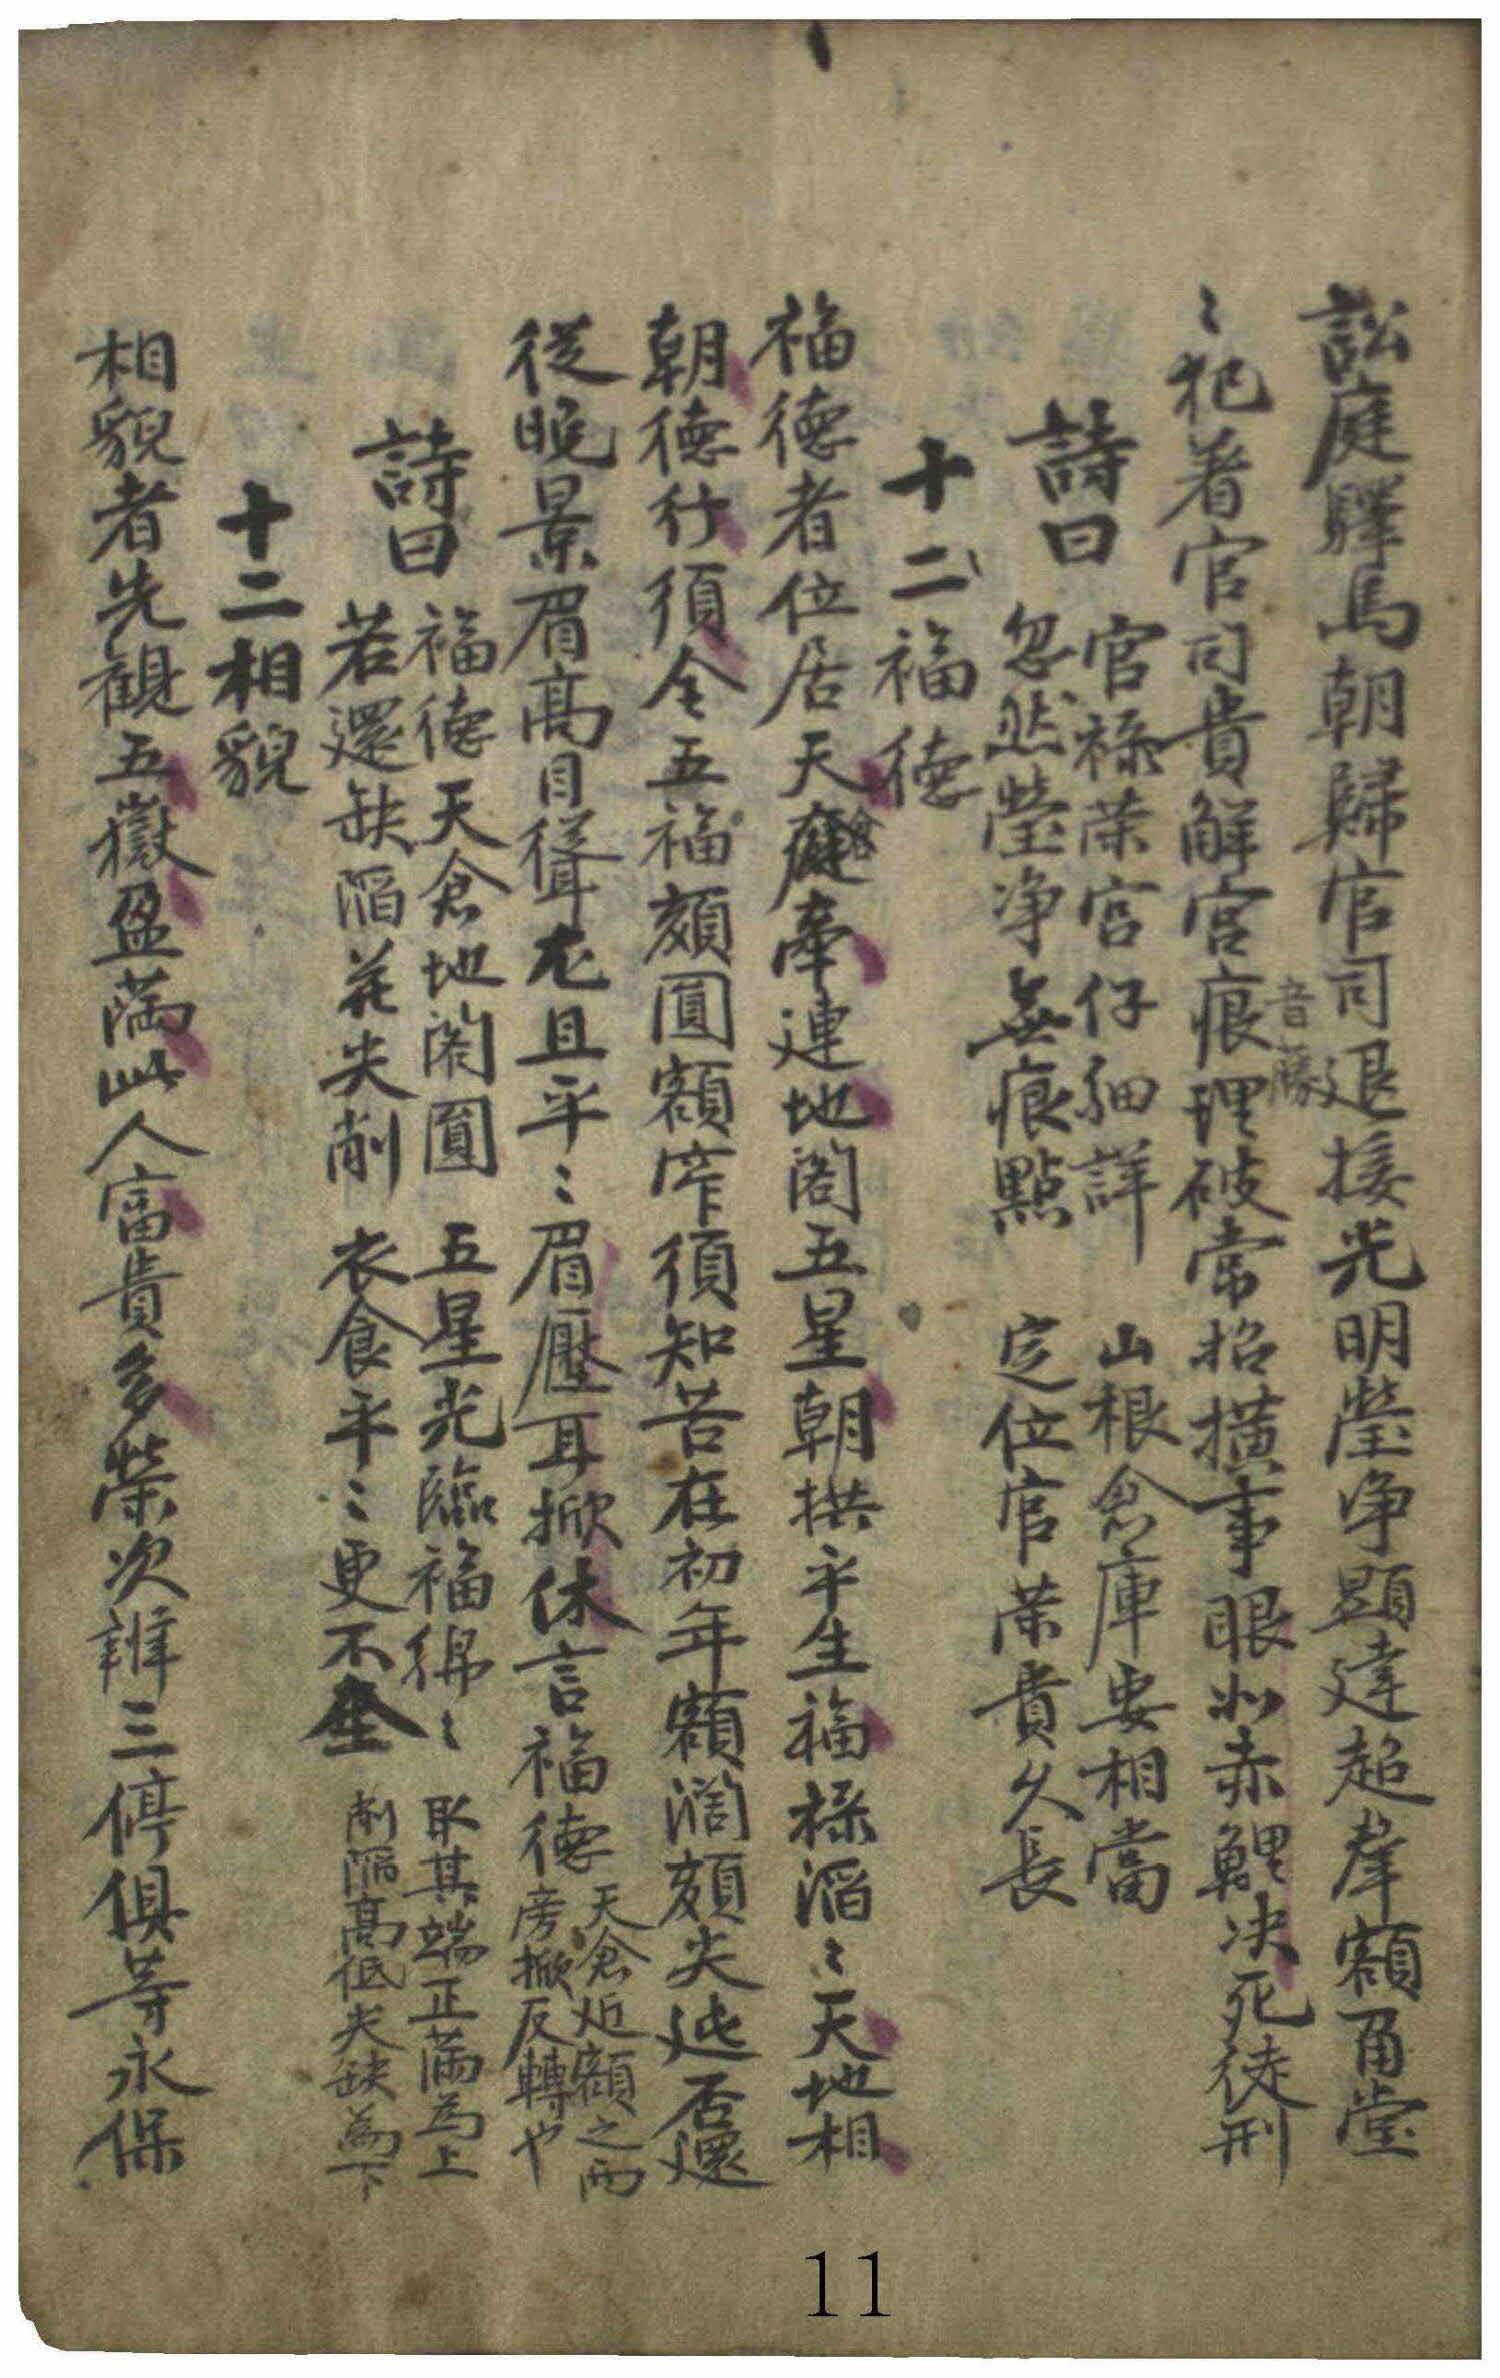 訟庭驛馬朝歸官司退接光明瑩净顕達超羣額角堂
〻犯着官司貴解宫痕理破常招橫事眼如赤鯉决死徒刑
音藤
詩曰
官祿荣宫仔細詳 山根倉庫要相當
忽然瑩净無痕點 定位官荣貴久長
十二福德
福德者位居天庭牽連地阁五星朝拱平生福祿滔〻天地相
倉
朝德行須全五福頦圓額窄須知苦在初年額濶頦尖迍否還
從晚景眉高目聳尤且平〻眉壓耳掀休言福德
天倉近額之両
旁掀反轉也
詩曰
福德天倉地阁圓 五星光臨福綿〻
若還缺陷并尖削 衣食平〻更不全
取其端正滿為上
削陷高低尖缺為下
十二相貌
相貌者先觀五嶽盈滿此人富貴多榮次辨三停俱等永保
11